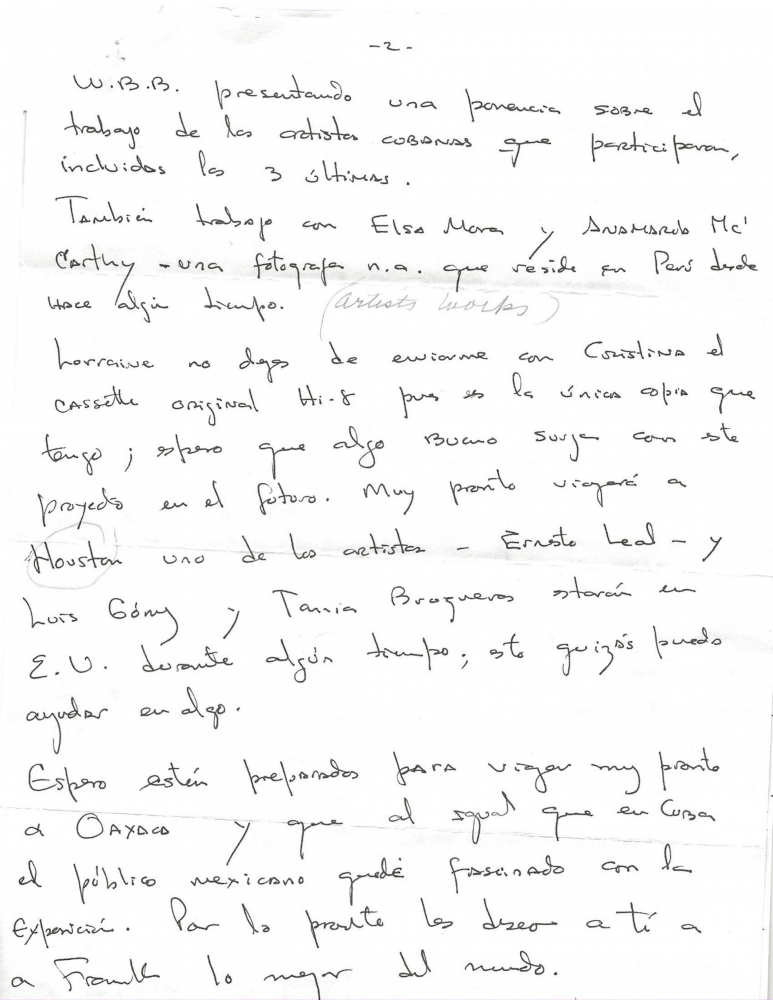 -2-
W.B.B. presentando una ponencia sobre el
trabajo de los artistas cubanas que participaron,
incluidas las 3 últimas.
También trabajo con Elsa Mora y Anamaría Mc'
Carthy - una fotógrafa n.a. que reside en Perú desde
hace algún tiempo. (artists works)
Lorraine no dejes de enviarme con Cristina el
cassette original Hi-8 pues es la única copia que
tengo; espero que algo bueno surja con este
proyecto en el futuro. Muy pronto viajará a
Houston uno de los artistas - Ernesto Leal - y
Luis Gómez y Tania Brugueras estarán en
E.U. durante algún tiempo; esto quizás pueda
ayudar en algo.
Espero estén preparados para viajar muy pronto
a Oaxaca y que al igual que en Cuba
el público mexicano quede fascinado con la
exposición. Por lo pronto les deseo a tí a
a Frank lo mejor del mundo.